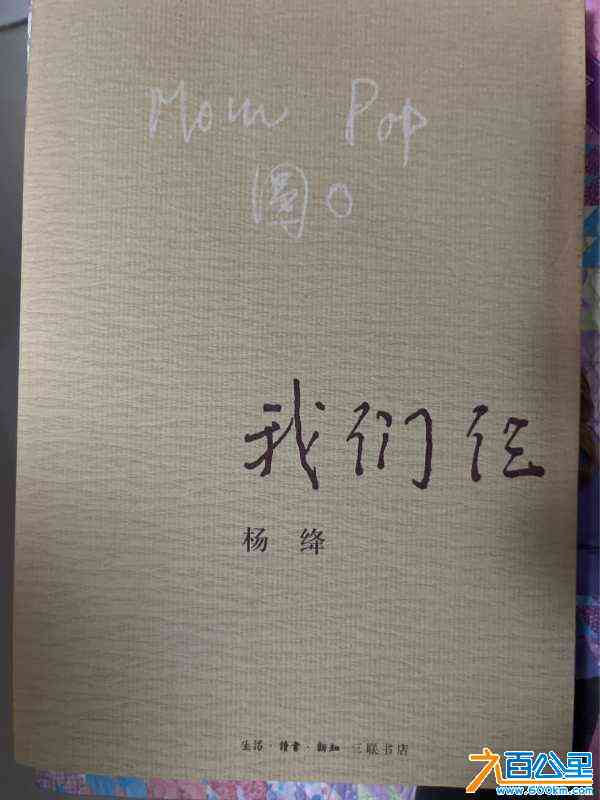 Mom Pop
圆〇
我们仨
杨 绛
生活·讀書·新知 三联书店
九百公里
www.600km.com